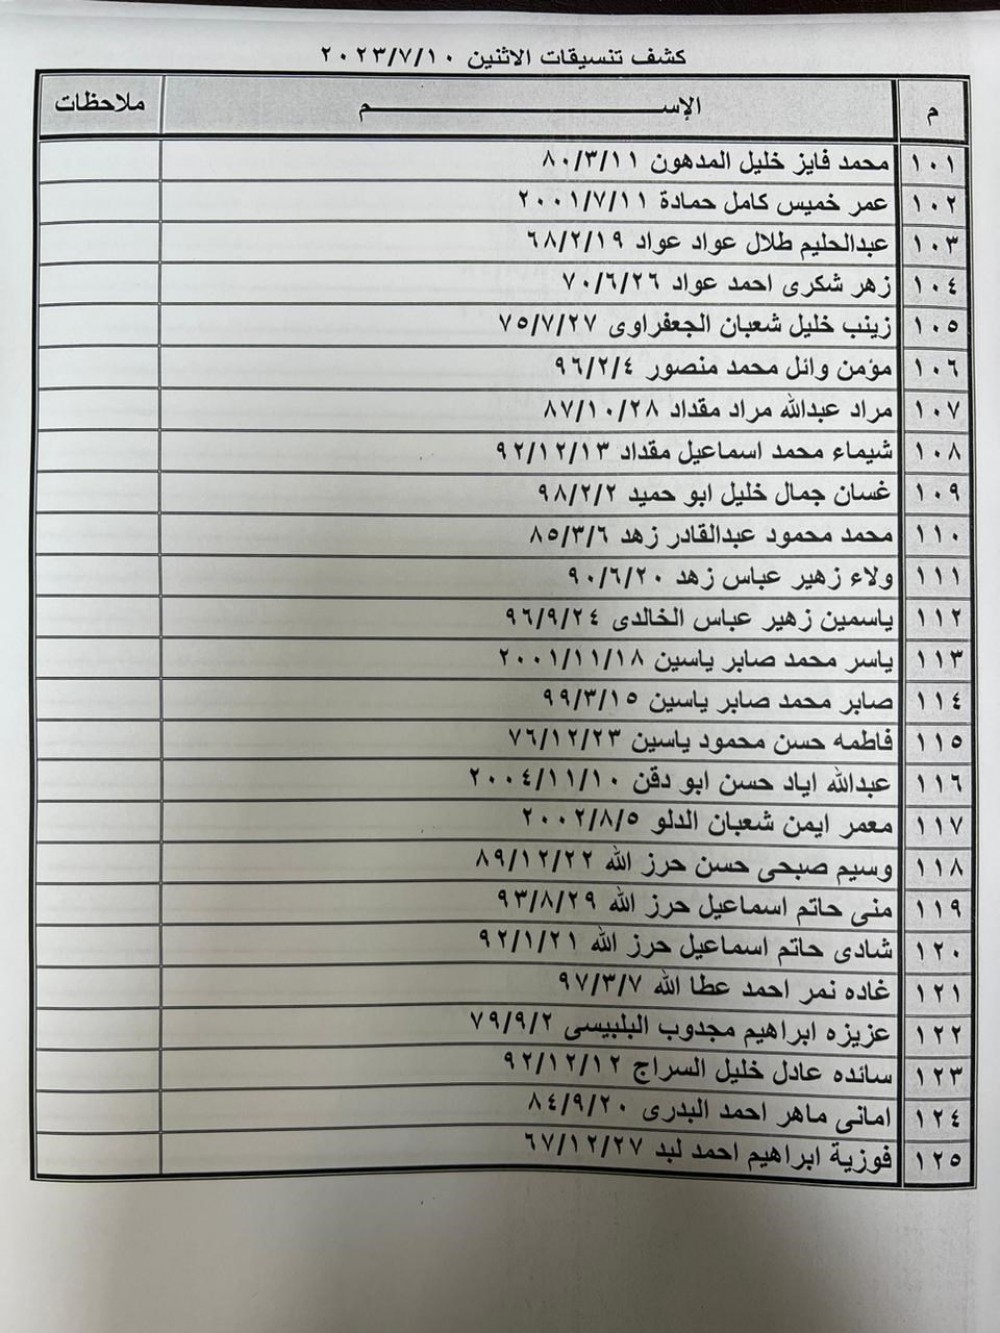 كشف تنسيقات الاثنين ٢٠٢٣/٧/١٠
م الإســـــم ملاحظات
١٠١ محمد فايز خليل المدهون ٨٠/٣/١١
١٠٢ عمر خميس كامل حمادة ٢٠٠١/٧/١١
١٠٣ عبدالحليم طلال عواد عواد ٦٨/٢/١٩
١٠٤ زهر شكرى احمد عواد ٧٠/٦/٢٦
١٠٥ زينب خليل شعبان الجعفراوى ٧٥/٧/٢٧
١٠٦ مؤمن وائل محمد منصور ٩٦/٢/٤
١٠٧ مراد عبدالله مراد مقداد ٨٧/١٠/٢٨
١٠٨ شيماء محمد اسماعيل مقداد ٩٢/١٢/١٣
١٠٩ غسان جمال خليل ابو حميد ٩٨/٢/٢
١١٠ محمد محمود عبدالقادر زهد ٨٥/٣/٦
١١١ ولاء زهير عباس زهد ٩٠/٦/٢٠
١١٢ ياسمين زهير عباس الخالدى ٩٦/٩/٢٤
١١٣ ياسر محمد صابر ياسين ٢٠٠١/١١/١٨
١١٤ صابر محمد صابر ياسين ٩٩/٣/١٥
١١٥ فاطمه حسن محمود ياسين ٧٦/١٢/٢٣
١١٦ عبدالله اياد حسن ابو دقن ٢٠٠٤/١١/١٠
١١٧ معمر ايمن شعبان الدلو ٢٠٠٢/٨/٥
١١٨ وسيم صبحى حسن حرز الله ٨٩/١٢/٢٢
١١٩ منى حاتم اسماعيل حرز الله ٩٣/٨/٢٩
١٢٠ شادى حاتم اسماعيل حرز الله ٩٢/١/٢١
١٢١ غاده نمر احمد عطا الله ٩٧/٣/٧
١٢٢ عزيزه ابراهيم مجدوب البلبيسى ٧٩/٩/٢
١٢٣ سانده عادل خليل السراج ٩٢/١٢/١٢
١٢٤ امانى ماهر احمد البدرى ٨٤/٩/٢٠
١٢٥ فوزية ابراهيم احمد لبد ٦٧/١٢/٢٧